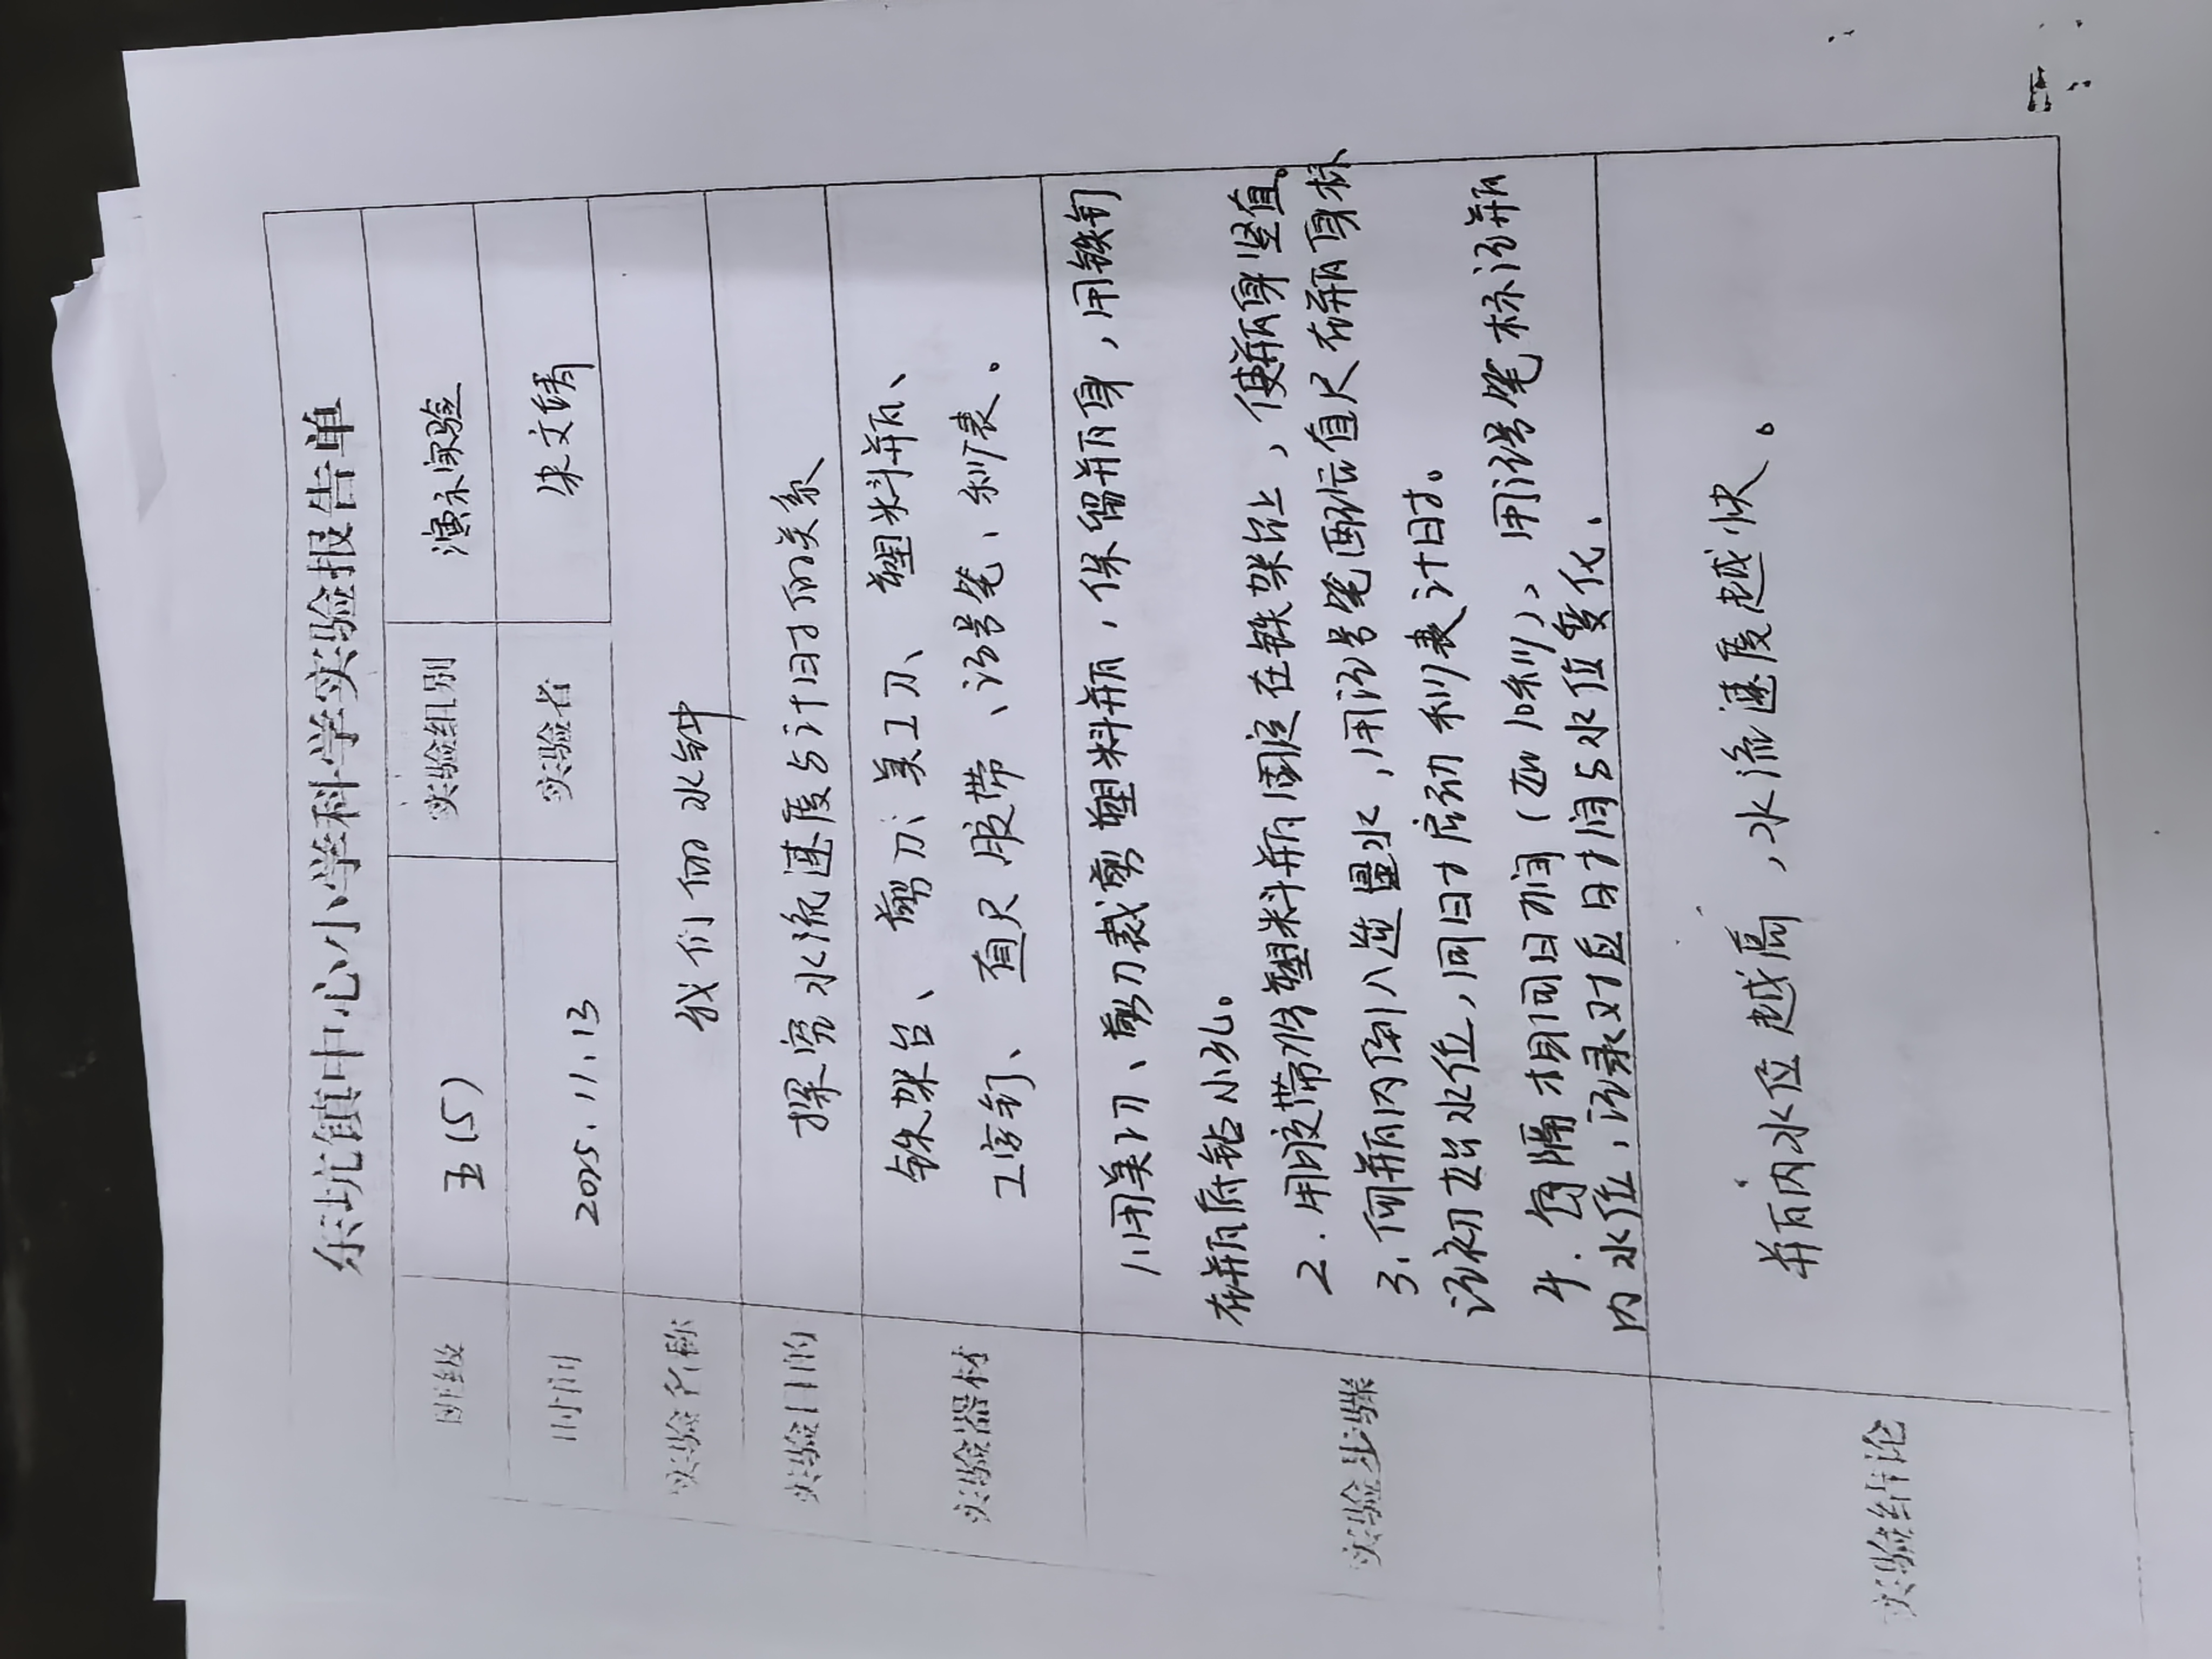 东坑镇中心小学科学实验报告单
班级 五(5) 实验组别 演示实验
时间 2025.11.13 实验者 朱文靖
实验名称 我们的水钟
实验目的 探究水流速度与计时的关系
实验器材 铁架台、剪刀、美工刀、塑料瓶、
工字钉、直尺胶带、记号笔、秒表。
实验步骤
1.用美工刀、剪刀裁剪塑料瓶,保留瓶身,用铁钉
在瓶底钻小孔。
2.用胶带将塑料瓶固定在铁架台上,使瓶身竖直。
3.向瓶内倒入适量水,用记号笔配合直尺在瓶身标
记初始水位,同时启动秒表计时。
4.每隔相同时间(如10秒),用记号笔标记瓶
内水位,记录对应时间与水位变化。
实验结论 瓶内水位越高,水流速度越快。